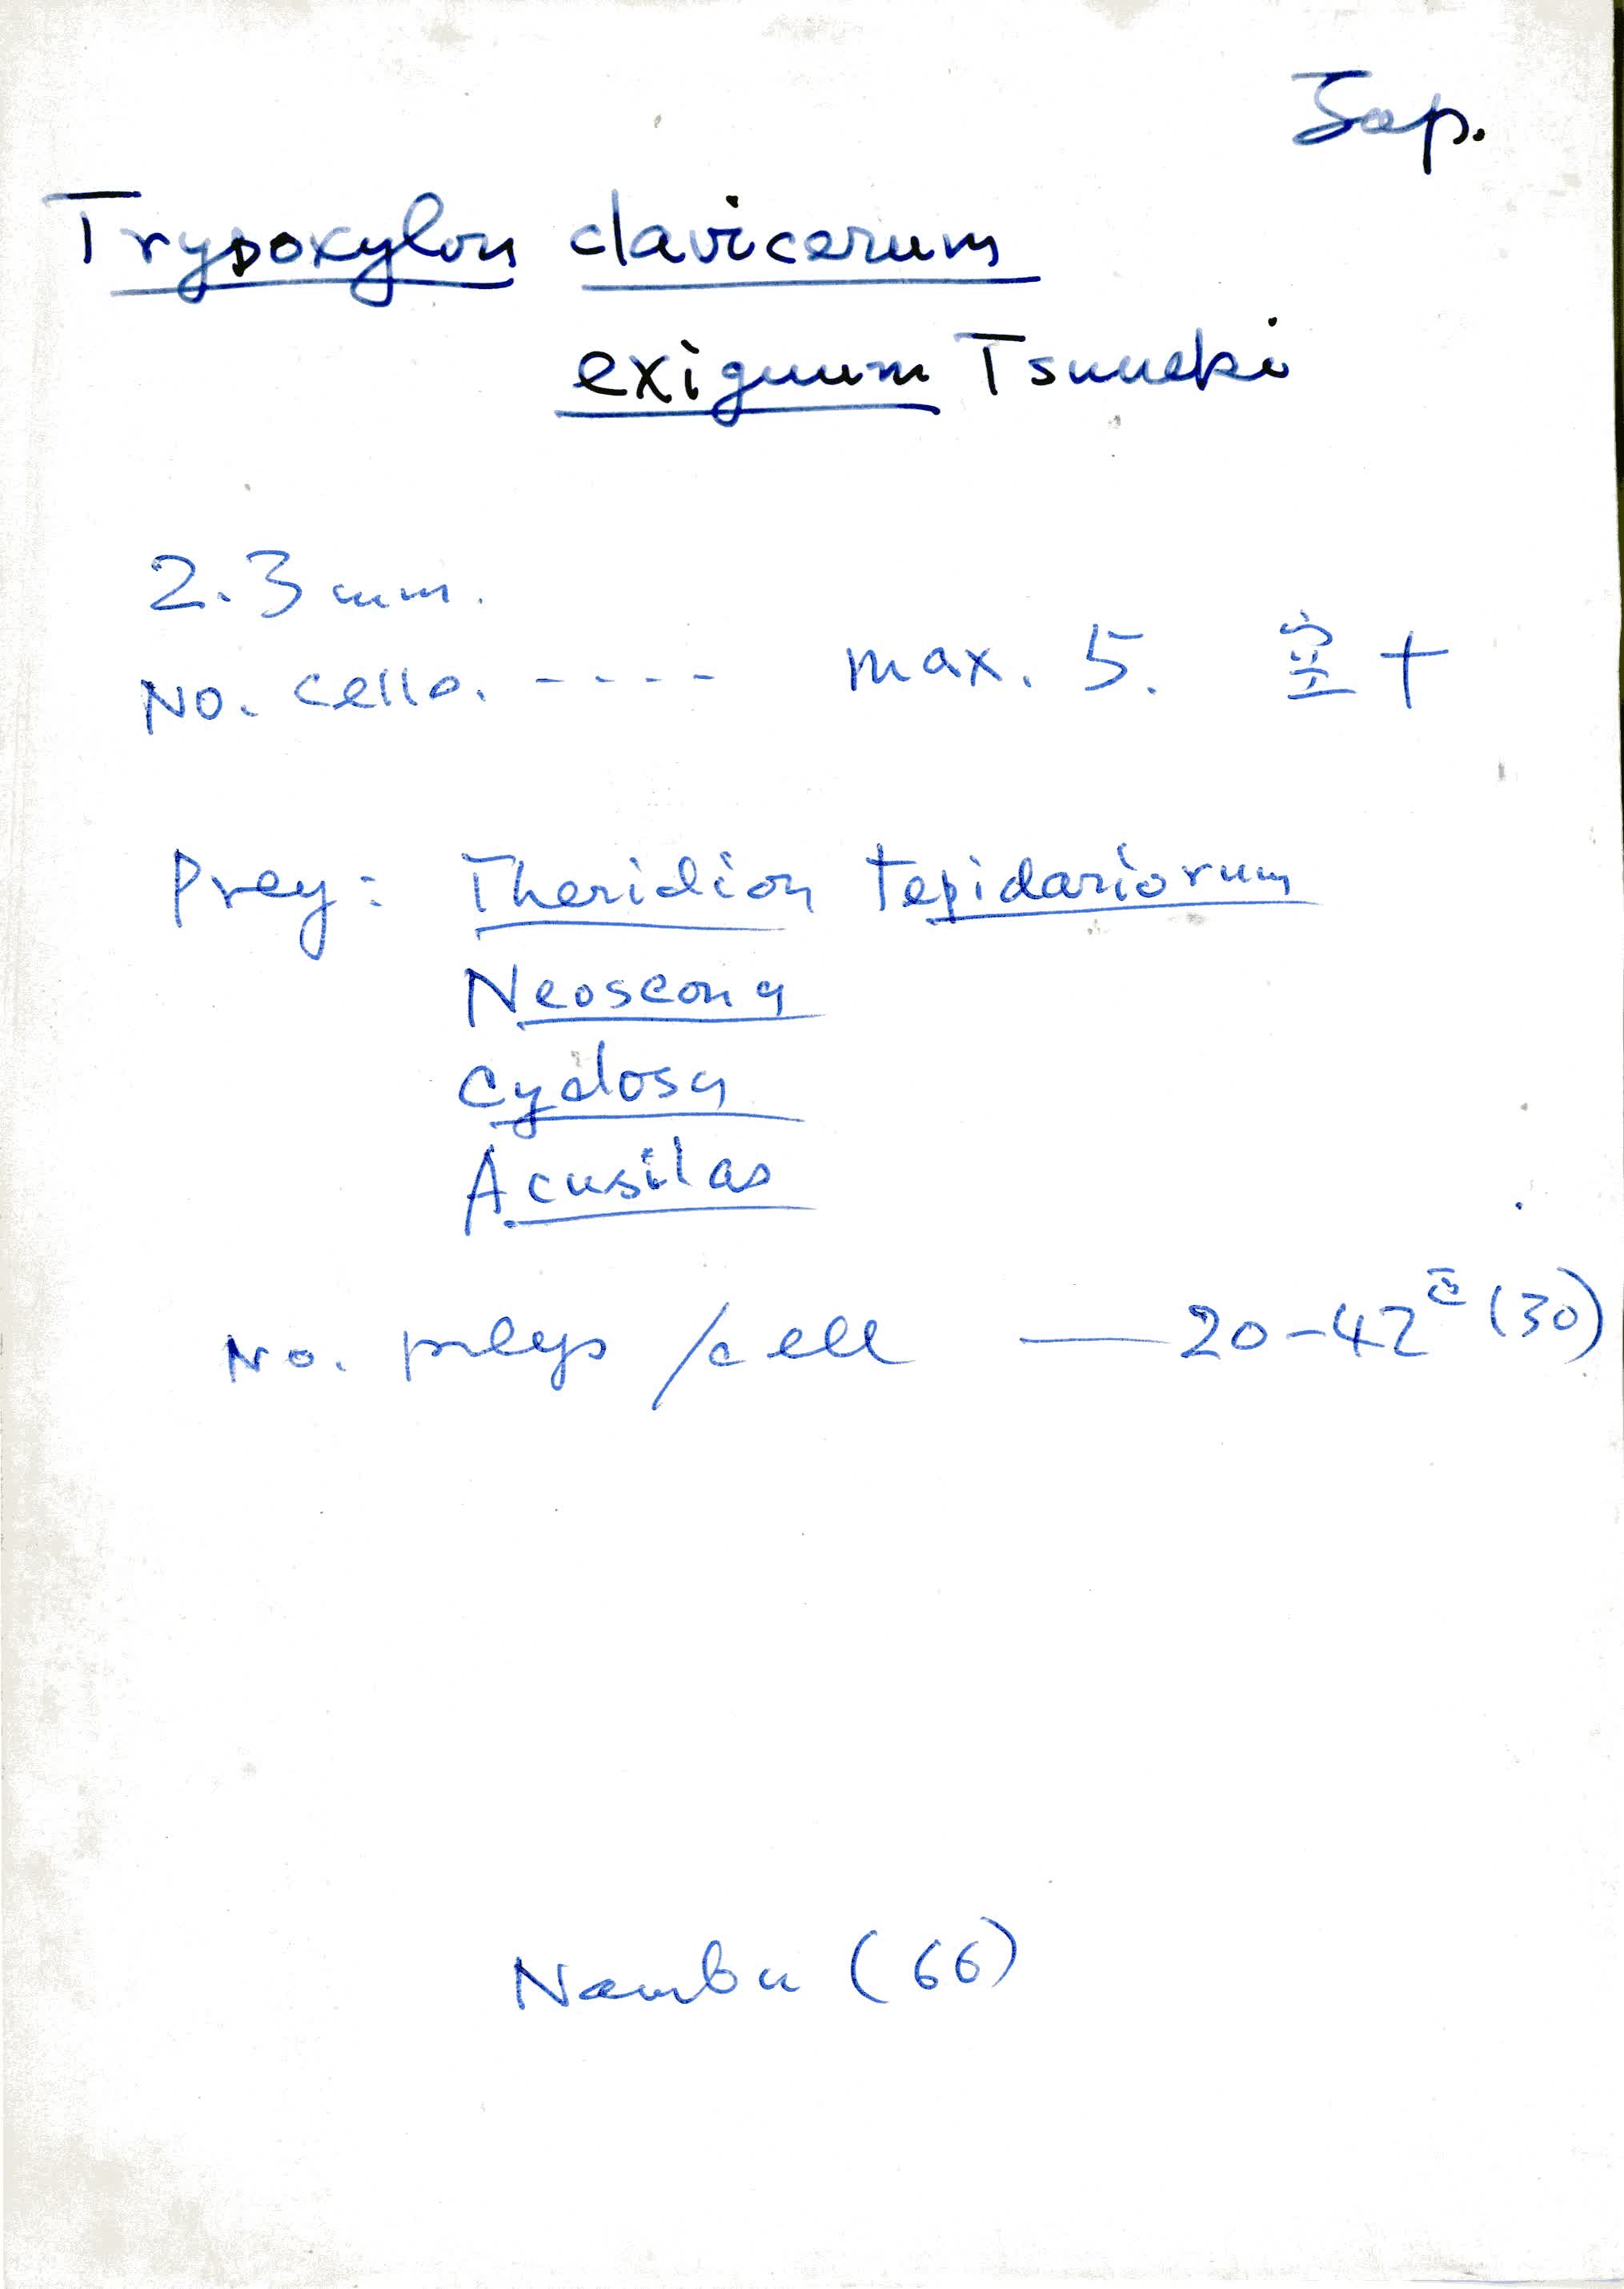 Jap.
Trypoxylon clavicerum
exiguum Tsuneki
2.3 mm.
No. cells. ---- max. 5. 空 +
Prey: Theridion tepidariorum
Neoscona
Cyclosa
Acusilas
No. preys /cell — 20-42 (30)
Nambu (66)